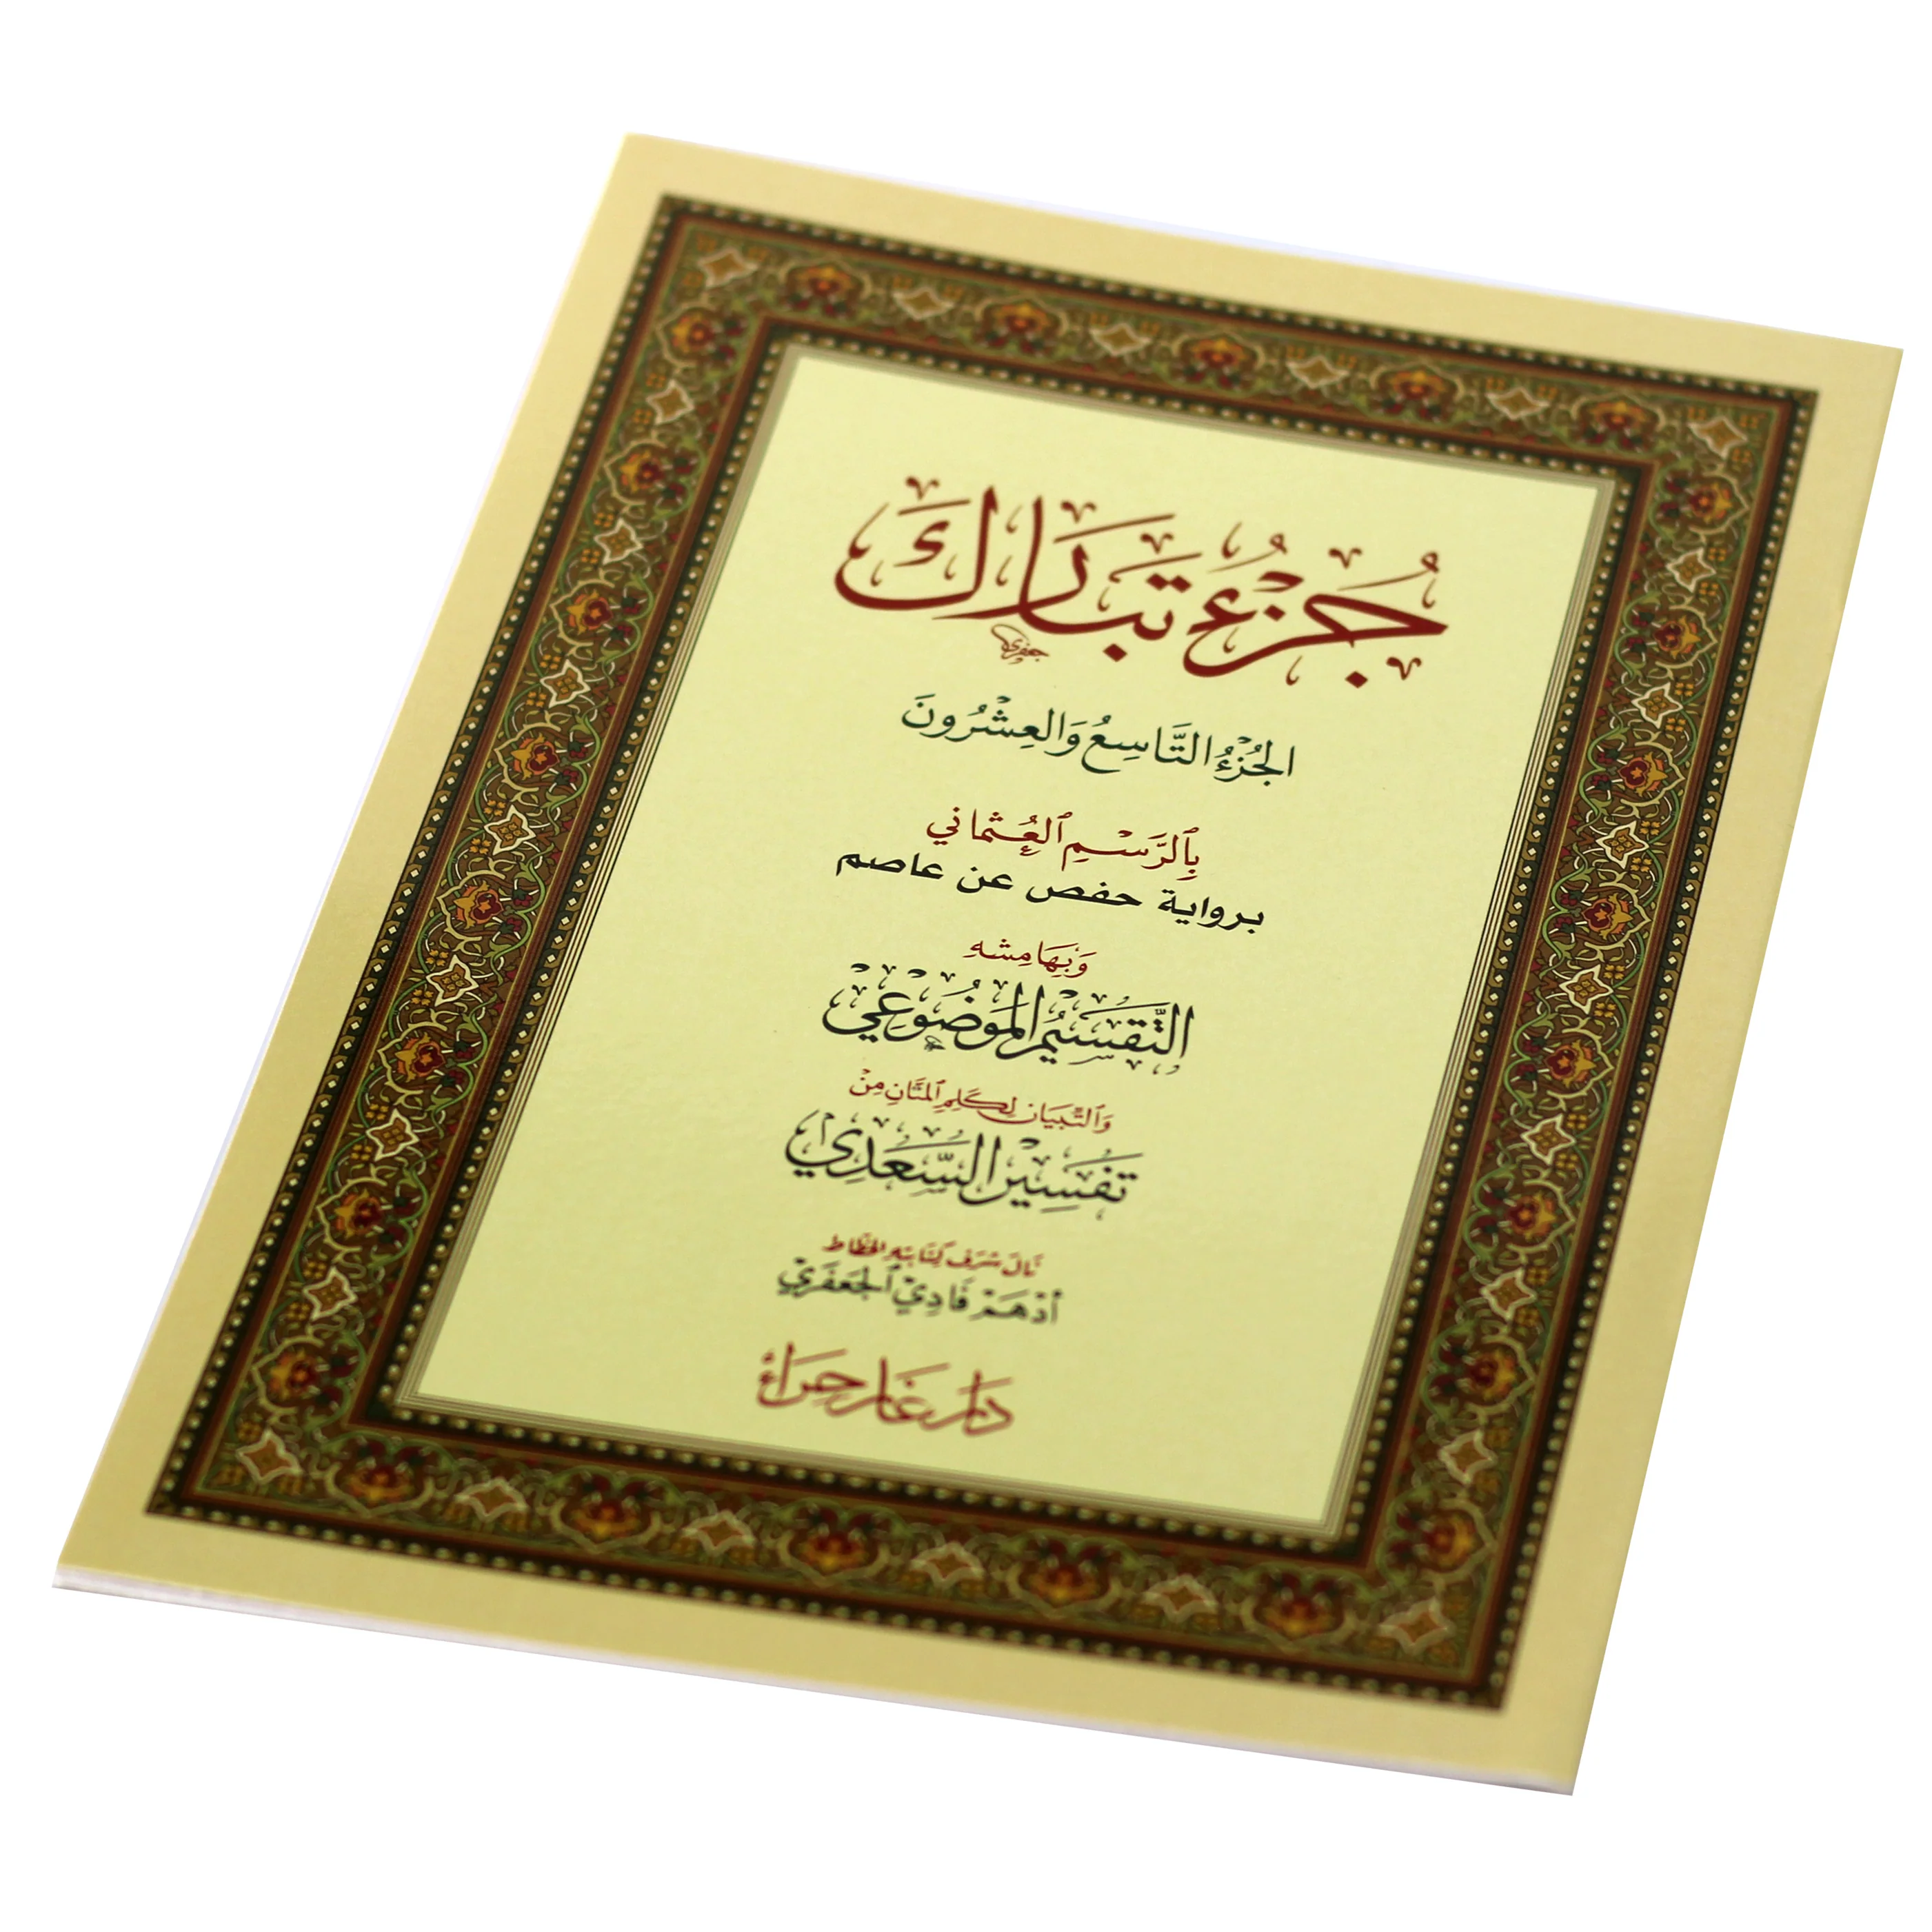 جُزْءُ تَبَارَكَ
جعفري
الجُزْءُ التَّاسِعُ وَالعِشْرُونَ
بِٱلرَّسْمِ ٱلعُثْمَانِي
برواية حفص عن عاصم
وَبِهَامِشِهِ
التَّقْسِيمُ المَوْضُوعِي
وَٱلتِّبْيَان لِكَلِمِ ٱلمَنَّانِ مِنْ
تَفْسِيْرِ السَّعْدِي
نَالَ شَرَفَ كِتَابَتِهِ الخَطَّاط
أَدْهَمْ فَادِيْ ٱلجَعْفَرِيْ
دَار غَار حِرَاء